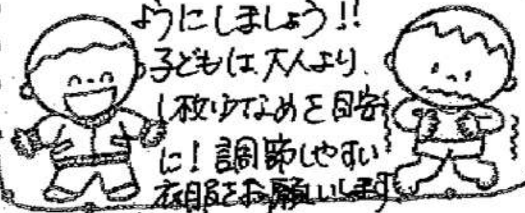 ようにしましょう!!
子どもは、大人より、
1枚少なめを目安
に!調節しやすい
衣服をお願いします